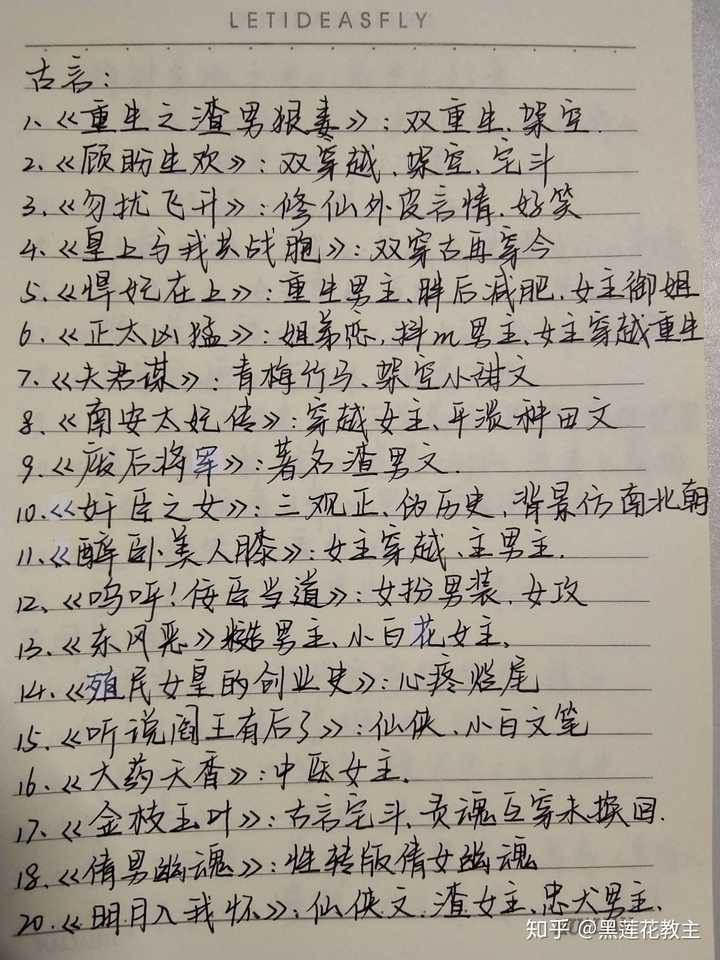 LETIDEASFLY
古言:
1、《重生之渣男狠毒》:双重生、架空.
2、《顾盼生欢》:双穿越、架空、宅斗
3、《勿扰飞升》:修仙外皮言情、好笑
4、《皇上与我共战袍》:双穿古再穿今
5、《悍妃在上》:重生男主、胖后减肥、女主御姐
6、《正太凶猛》:姐弟恋,抖m男主、女主穿越重生
7、《夫君谋》:青梅竹马、架空小甜文
8、《南安太妃传》:穿越女主、平淡种田文
9、《废后将军》:著名渣男文.
10、《奸臣之女》:三观正、伪历史,背景仿南北朝
11、《醉卧美人膝》:女主穿越、主男主.
12、《呜呼!佞臣当道》:女扮男装、女攻
13、《东风恶》糙男主、小白花女主.
14、《殖民女皇的创业史》:心疼烂尾
15、《听说阎王有后了》:仙侠、小白文笔
16、《大药天香》:中医女主.
17、《金枝玉叶》:古言宅斗、灵魂互穿未换回.
18、《倩男幽魂》:性转版倩女幽魂
20、《明月入我怀》:仙侠文.渣女主、忠犬男主.
知乎 @黑莲花教主